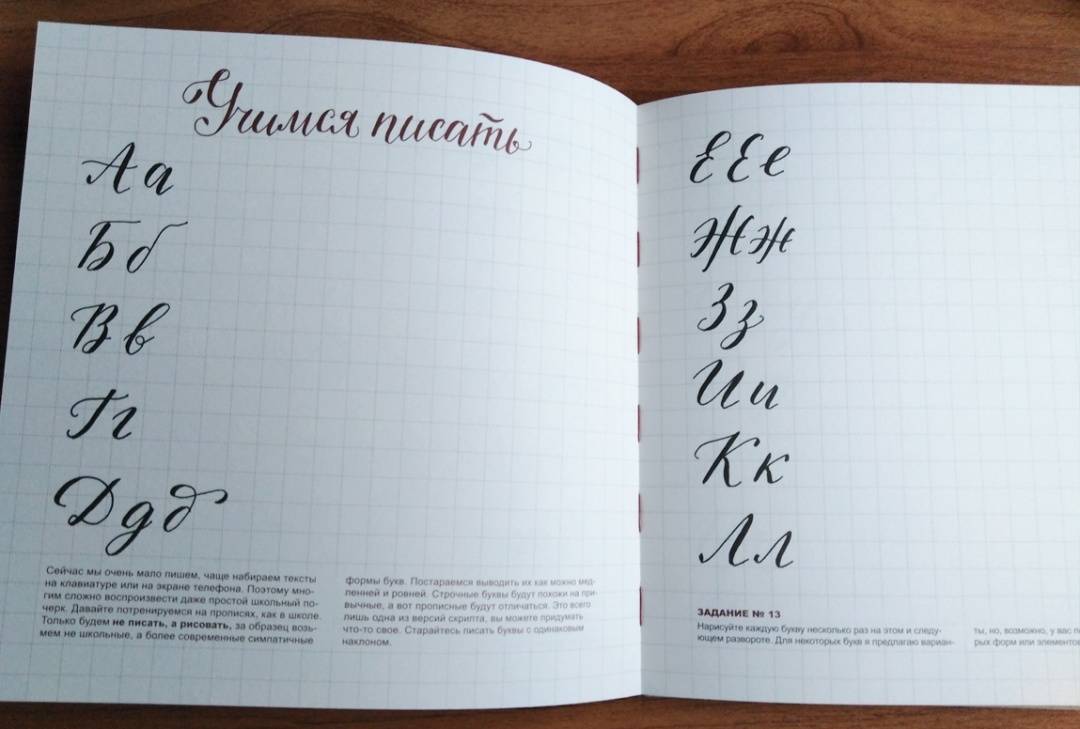 Учимся писать
Аа
Бб
Вв
Гг
Ддд
Сейчас мы очень мало пишем, чаще набираем тексты
на клавиатуре или на экране телефона. Поэтому мно-
гим сложно воспроизвести даже простой школьный по-
черк. Давайте потренируемся на прописях, как в школе.
Только будем не писать, а рисовать, за образец возь-
мем не школьные, а более современные симпатичные
формы букв. Постараемся выводить их как можно мед-
ленней и ровней. Строчные буквы будут похожи на при-
вычные, а вот прописные будут отличаться. Это всего
лишь одна из версий скрипта, вы можете придумать
что-то свое. Старайтесь писать буквы с одинаковым
наклоном.
ЕЕе
Жж
Зз
Ии
Кк
Лл
ЗАДАНИЕ № 13
Нарисуйте каждую букву несколько раз на этом и следу-
ющем развороте. Для некоторых букв я предлагаю вариан-
ты, но, возможно, у вас
рых форм или элементов